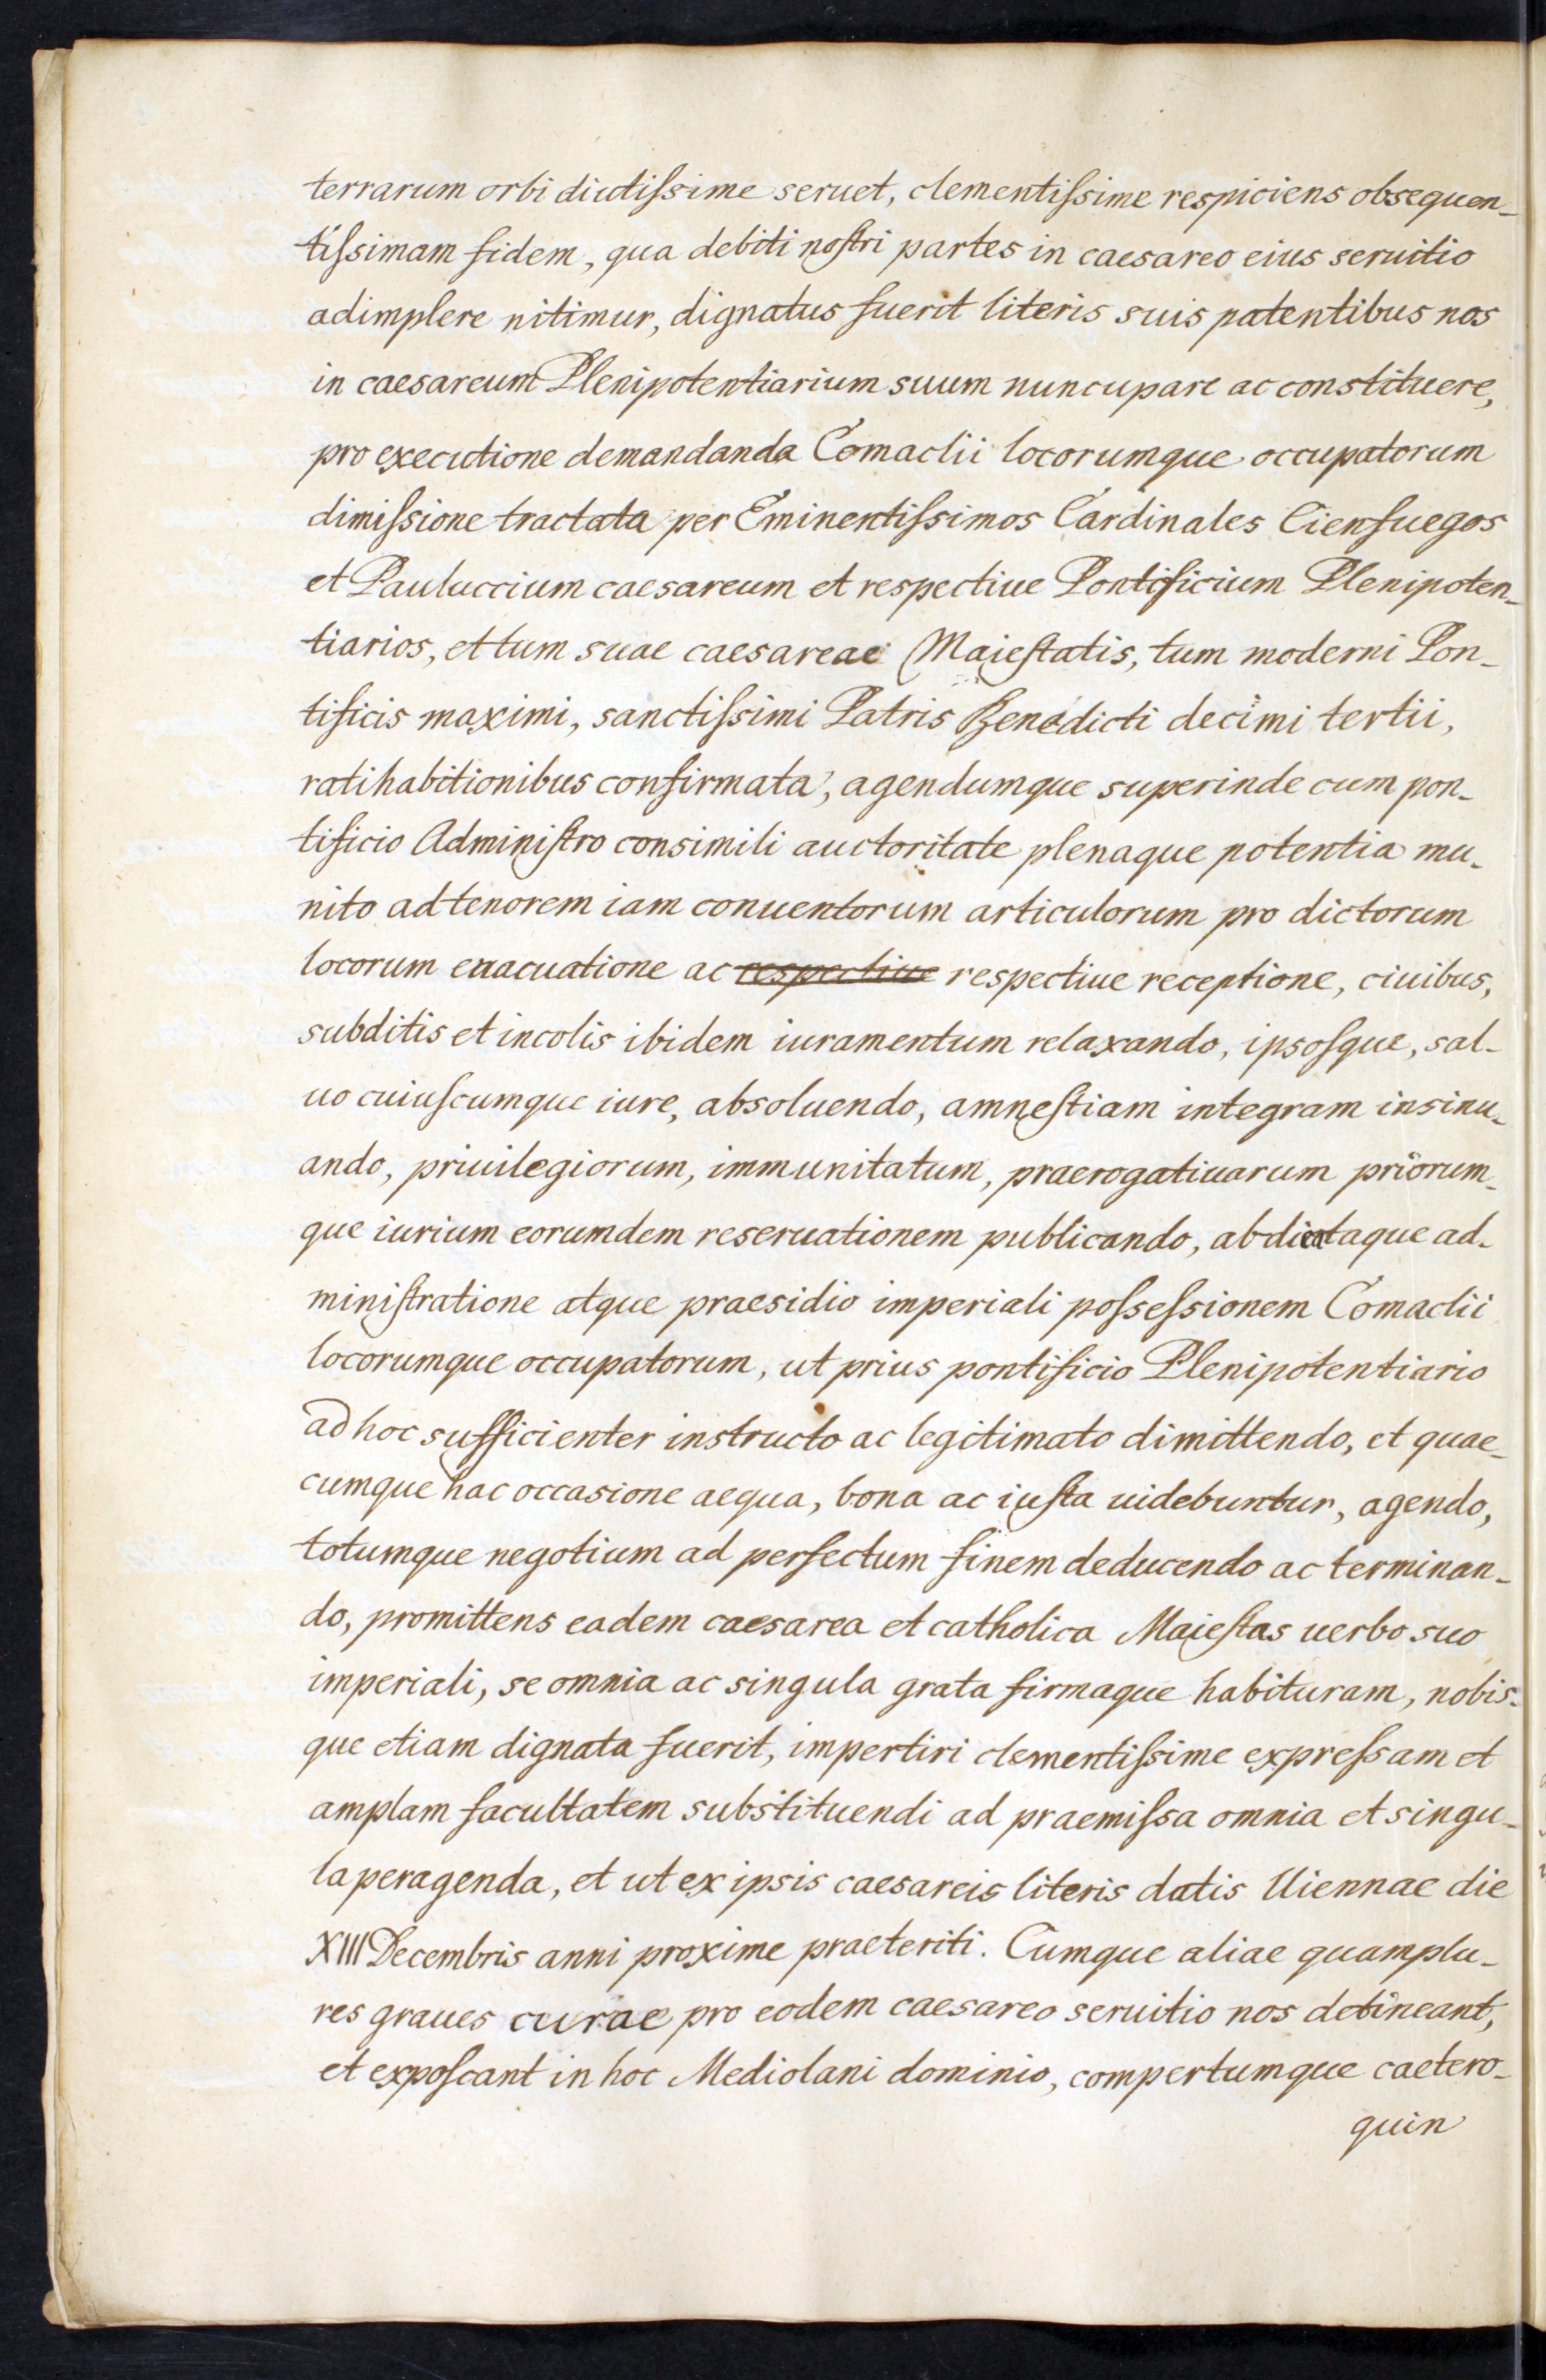 terrarum orbi diutiſsime seruet, clementiſsime respiciens obsequen-
tiſsimam fidem, qua debiti noſtri partes in caesareo eius seruitio
adimplere nitimur, dignatus fuerit literis suis patentibus nos
in caesareum Plenipotentiarium suum nuncupare ac constituere,
pro executione demandanda Comaclii locorumque occupatorum
dimiſsione tractata per Eminentiſsimos Cardinales Cienfuegos
et Pauluccium caesareum et respectiue Pontificium Plenipoten-
tiarios, et tum suae caesareae Maieſtatis, tum moderni Pon-
tificis maximi, sanctiſsimi Patris Benedicti decimi tertii,
ratihabitionibus confirmata, agendumque superinde cum pon-
tificio Adminiſtro consimili auctoritate plenaque potentia mu-
nito ad tenorem iam conuentorum articulorum pro dictorum
locorum euacuatione ac respectiue respectiue receptione, ciuibus,
subditis et incolis ibidem iuramentum relaxando, ipsoſque, sal-
uo cuiuſcumque iure, absoluendo, amneſtiam integram insinu-
ando, priuilegiorum, immunitatum, praerogatiuarum priorum-
que iurium eorumdem reseruationem publicando, abdicataque ad-
miniſtratione atque praesidio imperiali poſseſsionem Comaclii
locorumque occupatorum, ut prius pontificio Plenipotentiario
ad hoc sufficienter instructo ac legitimato dimittendo, et quae-
cumque hac occasione aequa, bona ac iuſta uidebuntur, agendo,
totumque negotium ad perfectum finem deducendo ac terminan-
do, promittens eadem caesarea et catholica Maieſtas uerbo suo
imperiali, se omnia ac singula grata firmaque habituram, nobis-
que etiam dignata fuerit, impertiri clementiſsime expreſsam et
amplam facultatem substituendi ad praemiſsa omnia et singu-
la peragenda, et ut ex ipsis caesareis literis datis Uiennae die
XIII Decembris anni proxime praeteriti. Cumque aliae quamplu-
res graues curae pro eodem caesareo seruitio nos detineant,
et expoſcant in hoc Mediolani dominio, compertumque caetero-
quin